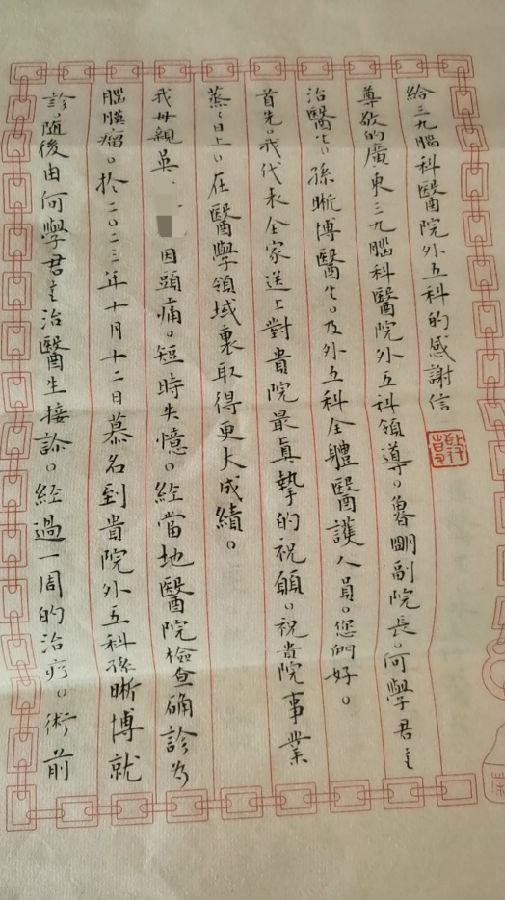 給三九腦科醫院外五科的感謝信
尊敬的廣東三九腦科醫院外五科領導。魯明副院長。何學君主
治醫生。孫晰博醫生。及外五科全體醫護人員。您們好。
首先。我代表全家送上對貴院最真摯的祝願。祝貴院事業
蒸蒸日上。在醫學領域裏取得更大成績。
我母親吳 因頭痛。短時失憶。經當地醫院檢查确診为
腦膜瘤。於二〇二三年十月十二日慕名到貴院外五科孫晰博就
診。随後由何學君主治醫生接診。經過一周的治疗。術前